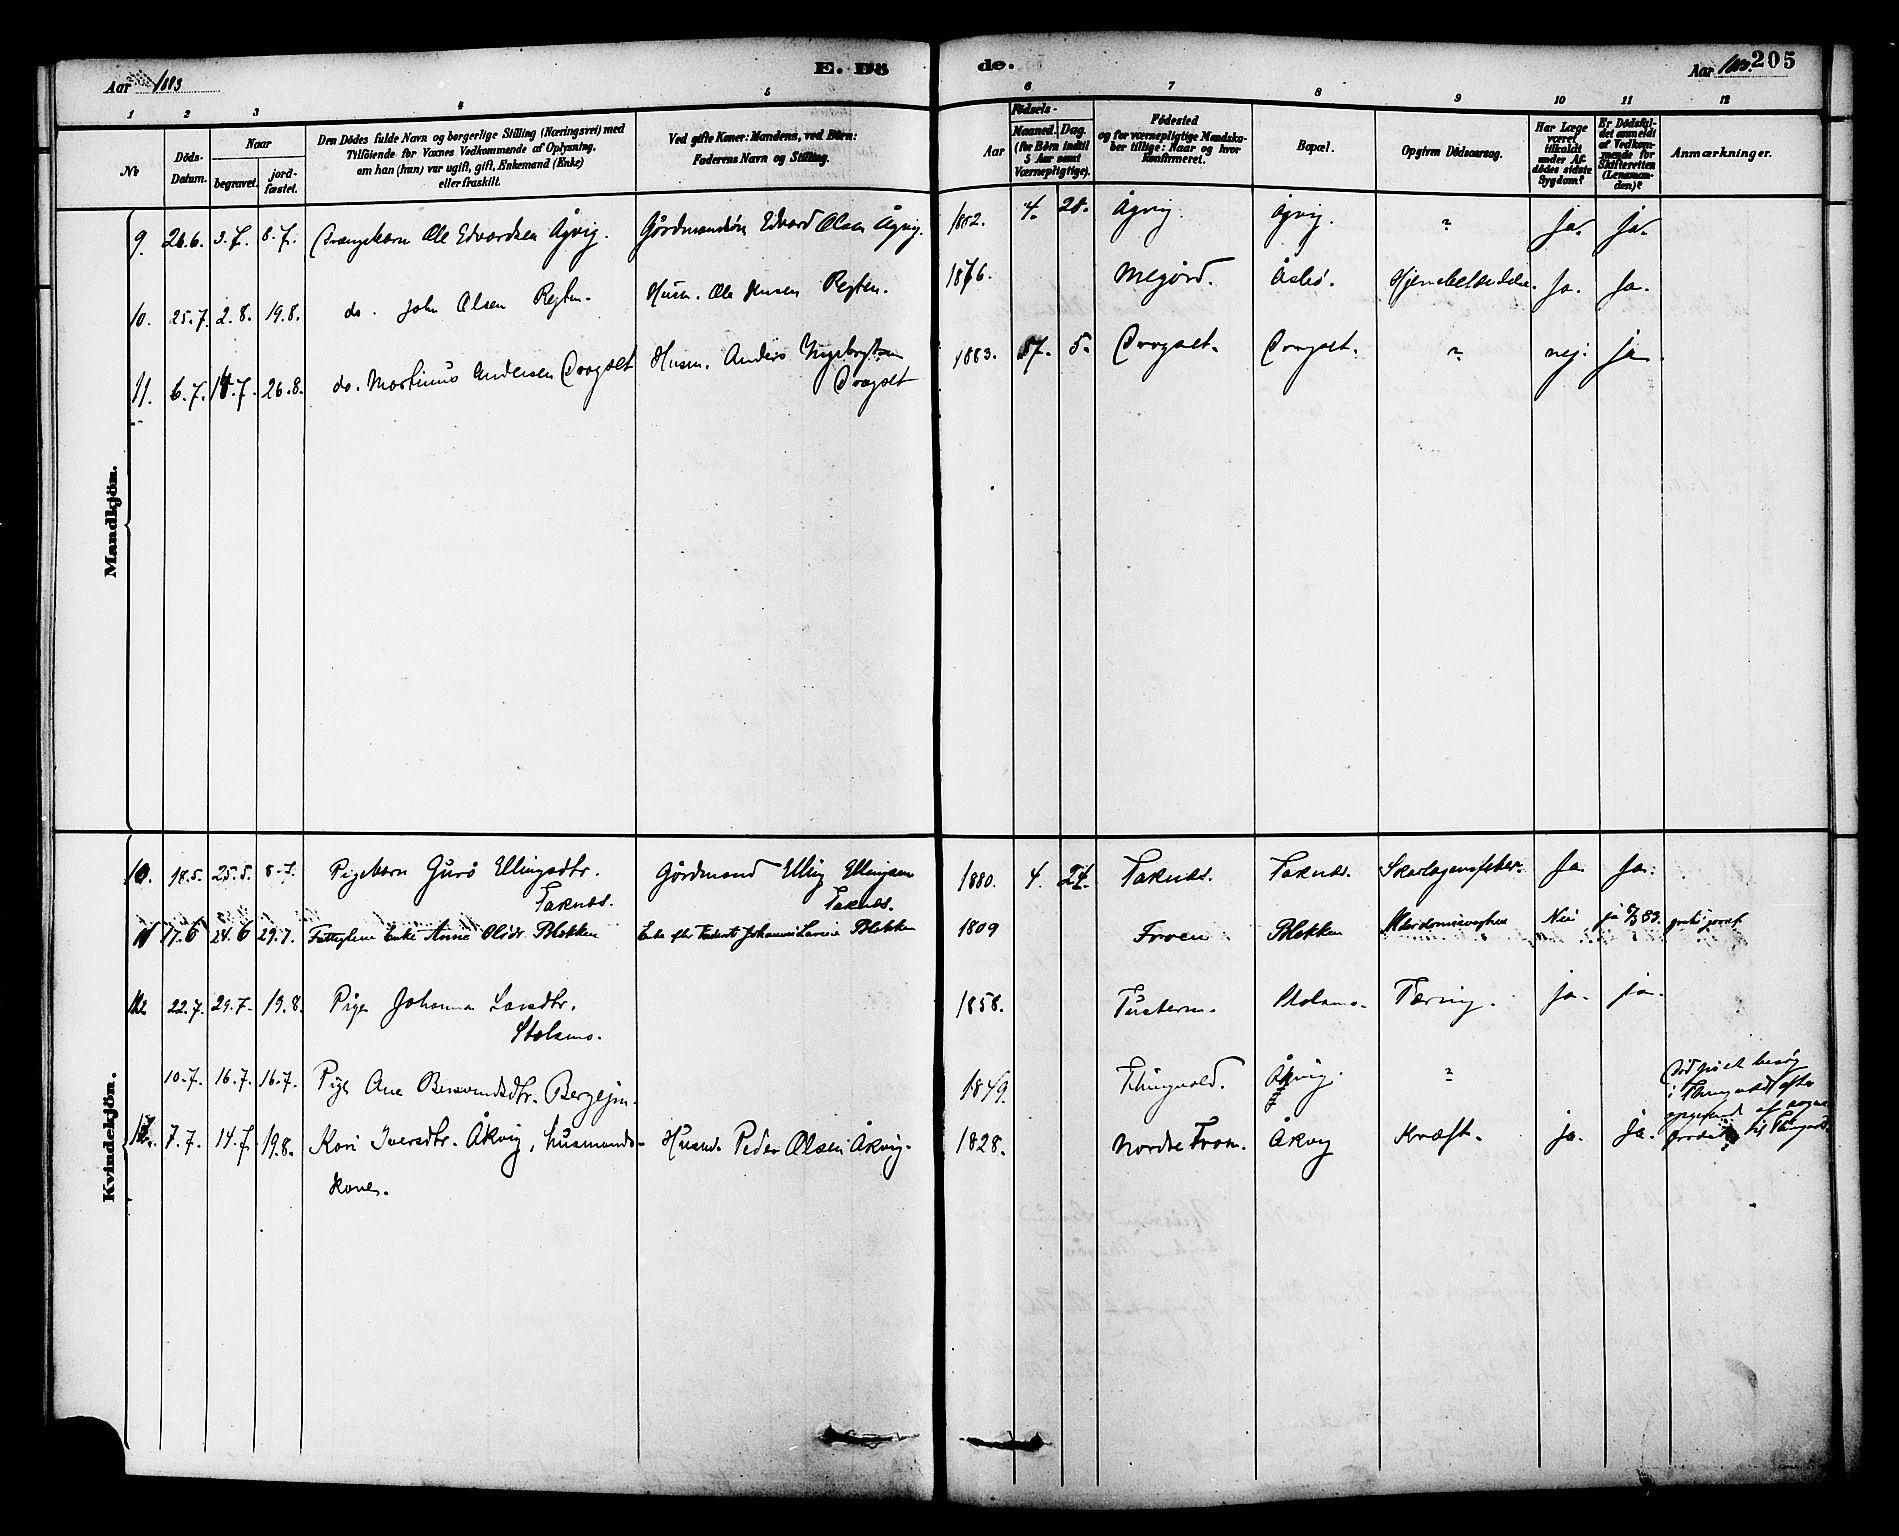 Aar 1883
E. Dö
de.
Aar 1883. 205
1 2 3 4 5 6 7 8 9 10 11 12
No
Döds-Datum.
Naar
begravet.
jord-fæstet.
Den Dödes fulde Navn og borgerlige Stilling (Næringsvei) med
Tilföiende for Voxnes Vedkommende af Oplysning,
om han (hun) var ugift, gift, Enkemand (Enke)
eller fraskilt.
Ved gifte Koner: Mandens, ved Börn:
Faderens Navn og Stilling.
Födsels-
Aar
Maaned. Dag.
(for Börn indtil
5 Aar samt
Værnepligtige).
Födested
og for værnepligtige Mandska-
ber tillige: Naar og hvor
konfirmeret.
Bopæl.
Opgiven Dödsaarsag.
Har Læge
været
tilkaldt
under Af-
dödes sidste
Sygdom?
Er Dödsfal-
det anmeldt
af Vedkom-
mende for
Skifteretten
(Lensman-
den)?
Anmærkninger.
Mandkjön.
9. 26.6. 3.7. 8.7. Drengebarn Ole Edvardsen Ågvig. Gårdmandsøn Edvard Olsen Ågvig. 1882. 4. 28. Ågvig. Ågvig. ? Ja. Ja.
10. 25.7. 2.8. 19.8. do. John Olsen Husm. Ole 1876. Megård. Ja. Ja.
11. 6.7. 26.8. do. Martinus Andersen Drogset Husm. Anders
Drogset 1883. 5. Drogset. Drogset. ? nej. ja.
Kvindekjön.
10. 18.5. 25.5. 8.7. Pigebarn Guro Ellingsdtr.
Taknes. Gårdmand Elling Ellingsen
Taknes. 1880. 4. 24. Taknes. Taknes. Skarlagensfeber. Ja. Ja.
11 17.6 24.6 29.7. Enke Anne Olsdr Blekken Enke efter Johannes Larsen Blekken 1809 Froen Blekken Nei ja
12 22.7. 29.7. 19.8. Pige Johanna Larsdtr.
Stolsmo. 1858. Tustern. Stolsmo. Tæring. ja. ja.
10.7. 16.7. 16.7. Pige Ane 1849. Thingvold. Åkvig. ? Død på et besøg
i Thingvold
7.7. 14.7. 19.8. Kari Iversdtr. Åkvig, husmands-
kone. Husmd. Peder Olsen Åkvig. 1828. Nordre From. Åkvig Kræft. ja. ja.